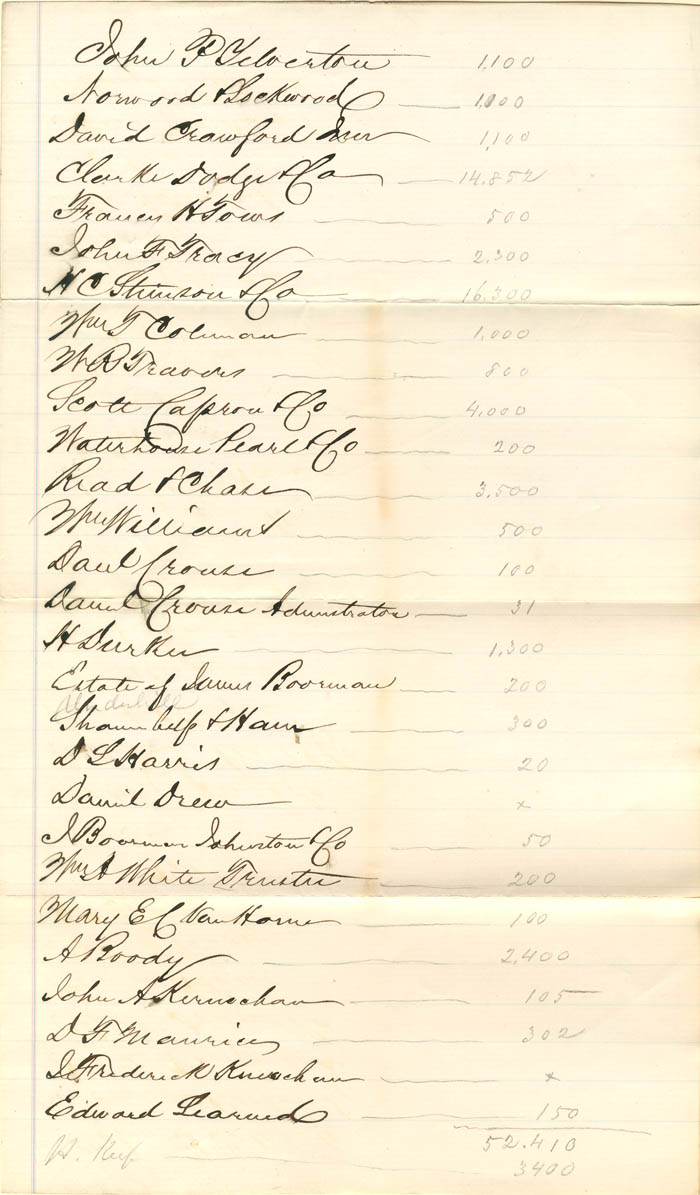 John P Yelverton 1,100
Norwood & Lockwood 1,100
David Crawford Junr 1,100
Clarke Dodge & Co 14.852
Francis H Tows 500
John F Tracy 2.300
H C Stimson & Co 16.300
Wm T Coleman 1,000
W R Travers 800
Scott Capron & Co 4,000
Waterhouse Pearl & Co 200
Read & Chase 3.500
Wm Williams 500
Danl Crouse 100
Daniel Crouse Administrator 31
H Durkee 1,300
Estate of James Boorman 200
& Ham 300
D L Harris 20
Daniel Drew x
J Boorman Johnston & Co 50
Wm A White Trustee 200
Mary E C Van Horne 100
A Boody 2,400
John A Kernochan 105
D F Maurice 302
J Frederick Kernochan x
Edward Learned 150
52.410
3400